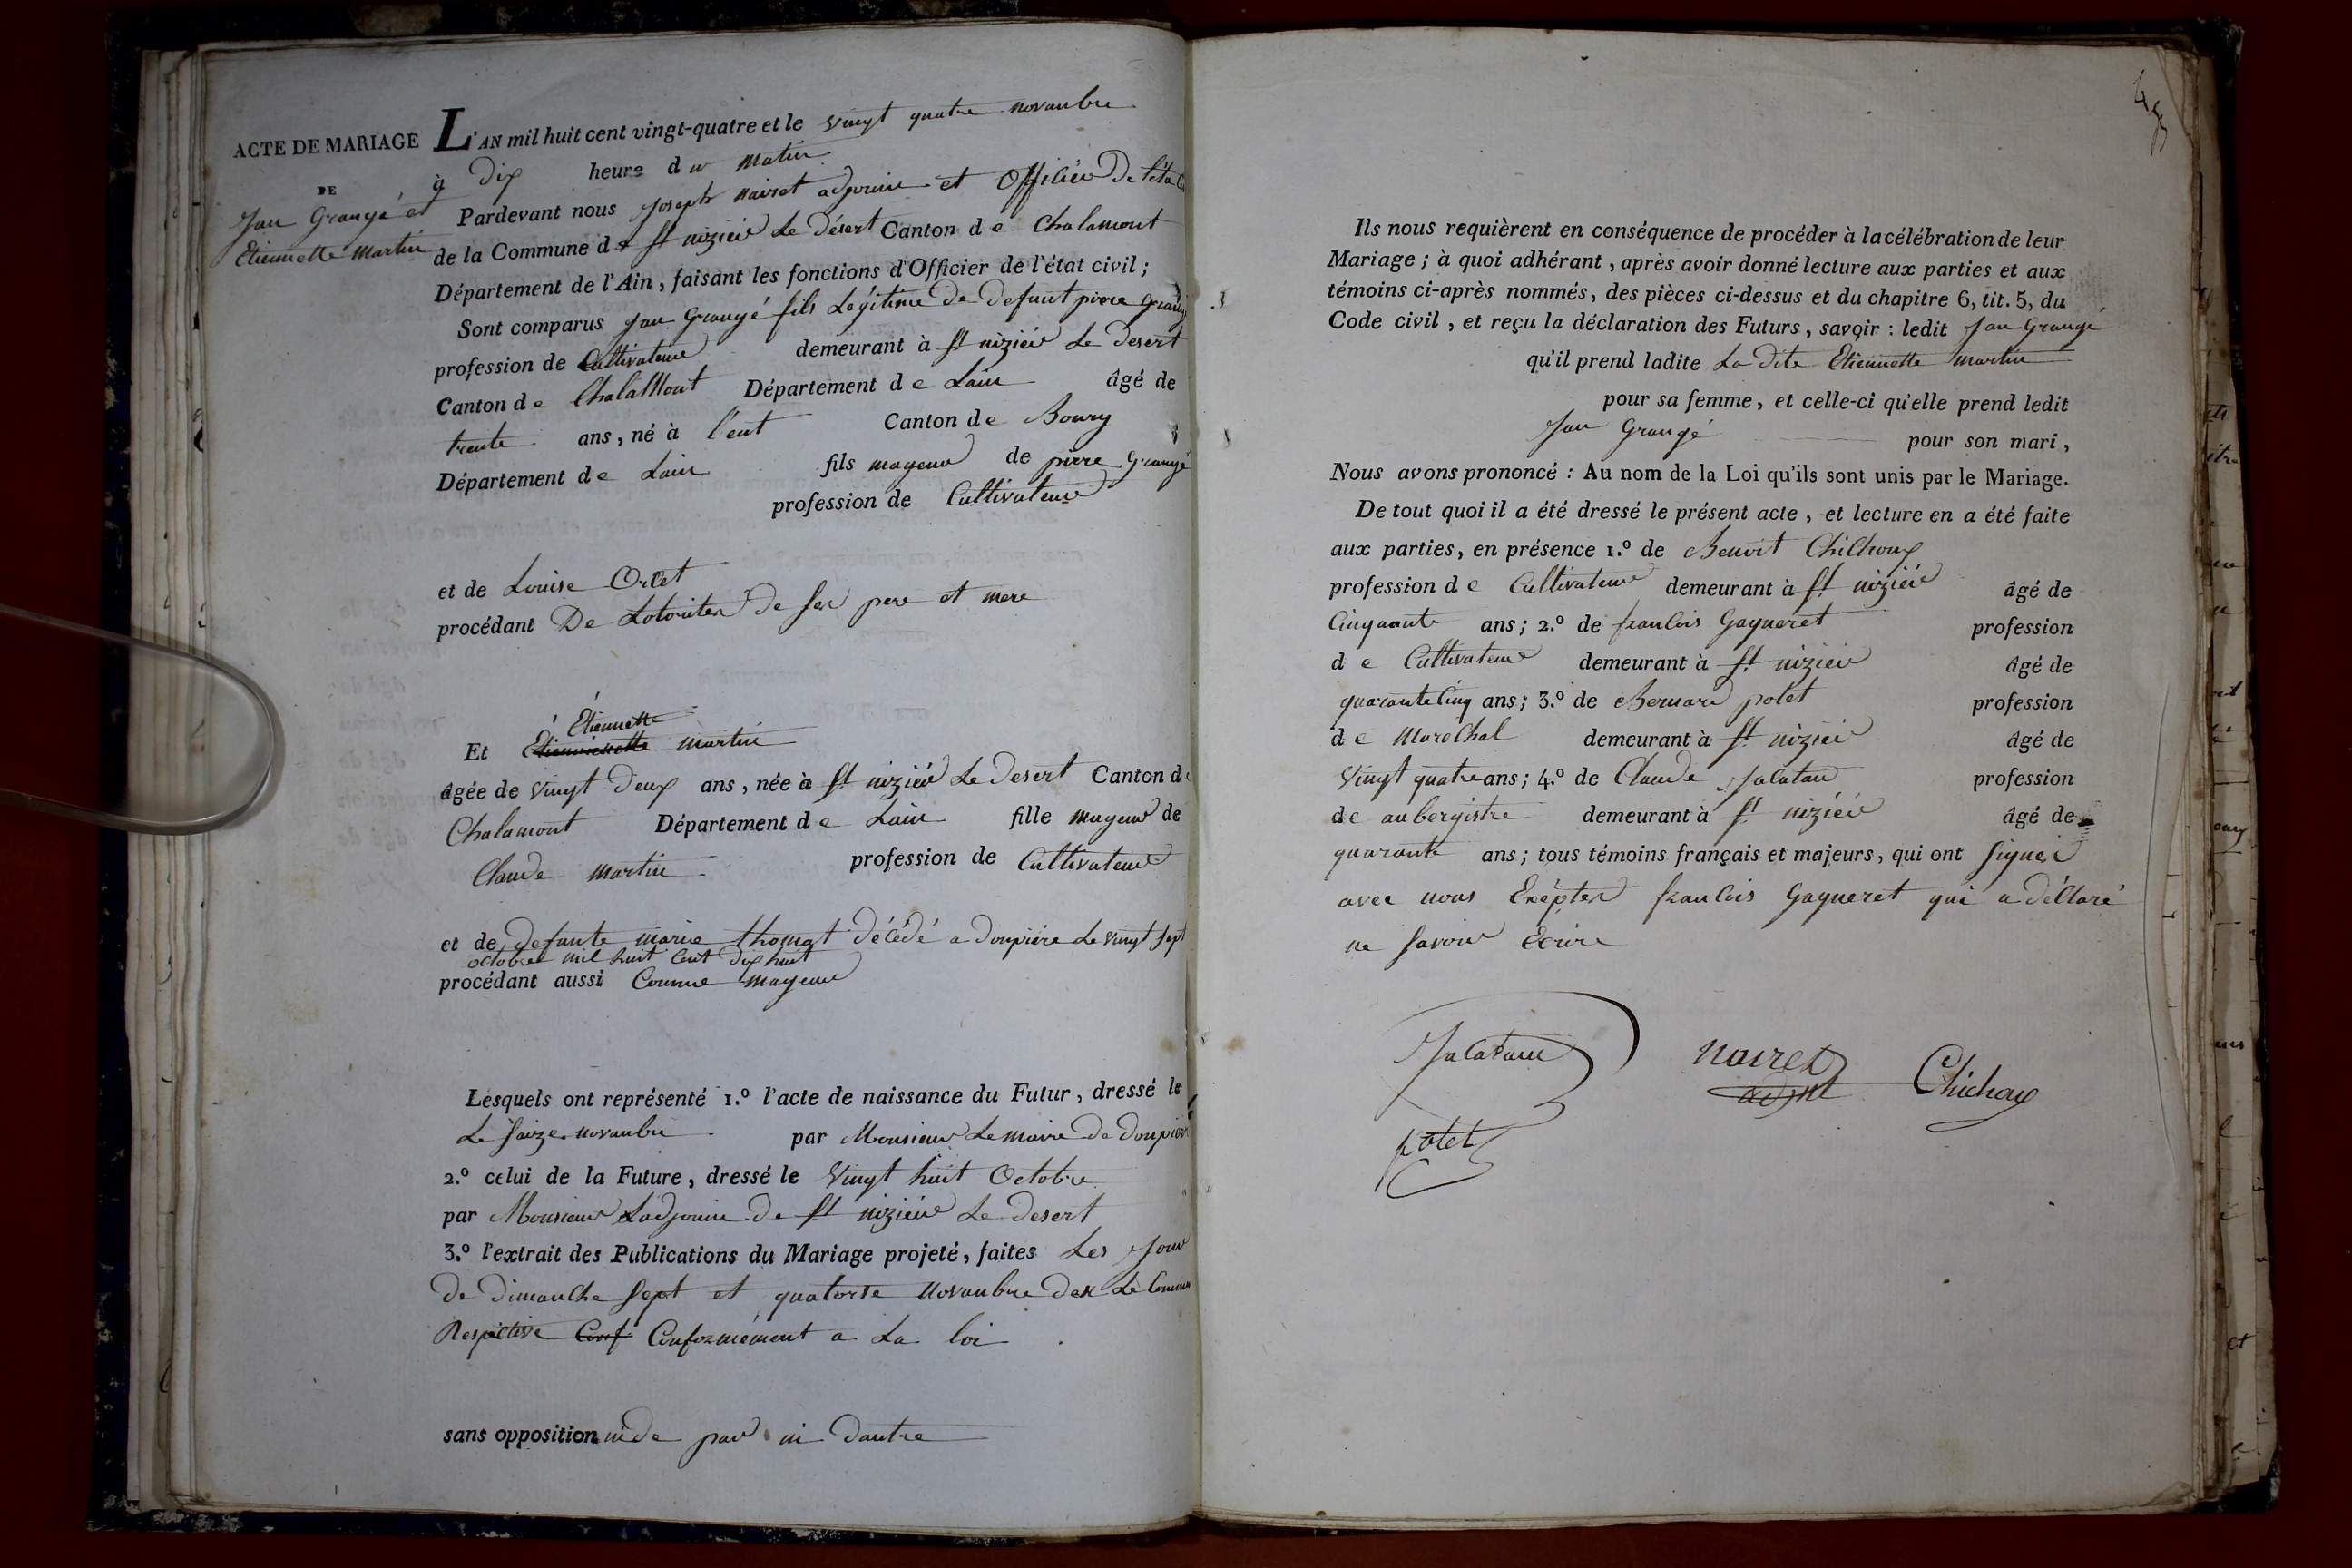 ACTE DE MARIAGE
DE
Jan Grangé et
Etiennette Martin
L'AN mil huit cent vingt-quatre et le vingt quatre novanbre
à dix heure du matin
Pardevant nous Joseph nairet adjoine et Officier De l'éta
de la Commune de St nizier Le Désert Canton de Chalamont
Département de l'Ain, faisant les fonctions d'Officier de l'état civil;
Sont comparus Jan Grangé fils Légitime de defunt pierre Grangé
profession de Cultivateur demeurant à St nizier Le Desert
Canton de ChalaMont Département de Lain âgé de
trente ans, né à l'ent Canton de Bourg
Département de Lain fils mageur de pierre Grangé
profession de Cultivateur
et de Louise Orset
procédant De Lotoriter de ses pere et mere
Etiennette
Et martin
âgée de vingt deux ans, née à St nizier Le Desert Canton de
Chalamont Département de Lain fille mageur de
Claude Martin profession de Cultivateur
et de defunte marie thomat décédé a donpière Le vingt sept
octobre mil huit cent dix huit
procédant aussi Comme mageur
Lesquels ont représenté 1.º l'acte de naissance du Futur, dressé le
Le saize novanbre par Monsieur Le maire De donpiere
2.º celui de la Future, dressé le vingt huit Octobre
par Monsieur Ladjoint De St nizier Le Desert
3.º l'extrait des Publications du Mariage projeté, faites Les Jour
De dimanche sept et quatorse Novanbre Den Le Commune
Respective Conf Conformément a La loi
sans opposition ni de par ni dautre
Ils nous requièrent en conséquence de procéder à la célébration de leur
Mariage; à quoi adhérant, après avoir donné lecture aux parties et aux
témoins ci-après nommés, des pièces ci-dessus et du chapitre 6, tit. 5, du
Code civil, et reçu la déclaration des Futurs, savoir: ledit Jan Grangé
qu'il prend ladite La dite Etiennette martin
pour sa femme, et celle-ci qu'elle prend ledit
Jan Grangé pour son mari,
Nous avons prononcé: Au nom de la Loi qu'ils sont unis par le Mariage.
De tout quoi il a été dressé le présent acte, et lecture en a été faite
aux parties, en présence 1.º de Benoit Chichoux
profession de Cultivateur demeurant à St nizier âgé de
Cinquante ans; 2.º de francois Gagneret profession
de Cultivateur demeurant à St nizier âgé de
quarante Cinq ans; 3.º de Bernard potet profession
de Maréchal demeurant à St nizier âgé de
vingt quatre ans; 4.º de Claude Jalatau profession
de aubergistre demeurant à St nizier âgé de
quarante ans; tous témoins français et majeurs, qui ont signer
avec nous Exépter francois Gagneret qui a déclaré
ne savoir Ecrire
Jalatau
nairet
adjnt
Chichoux
potet